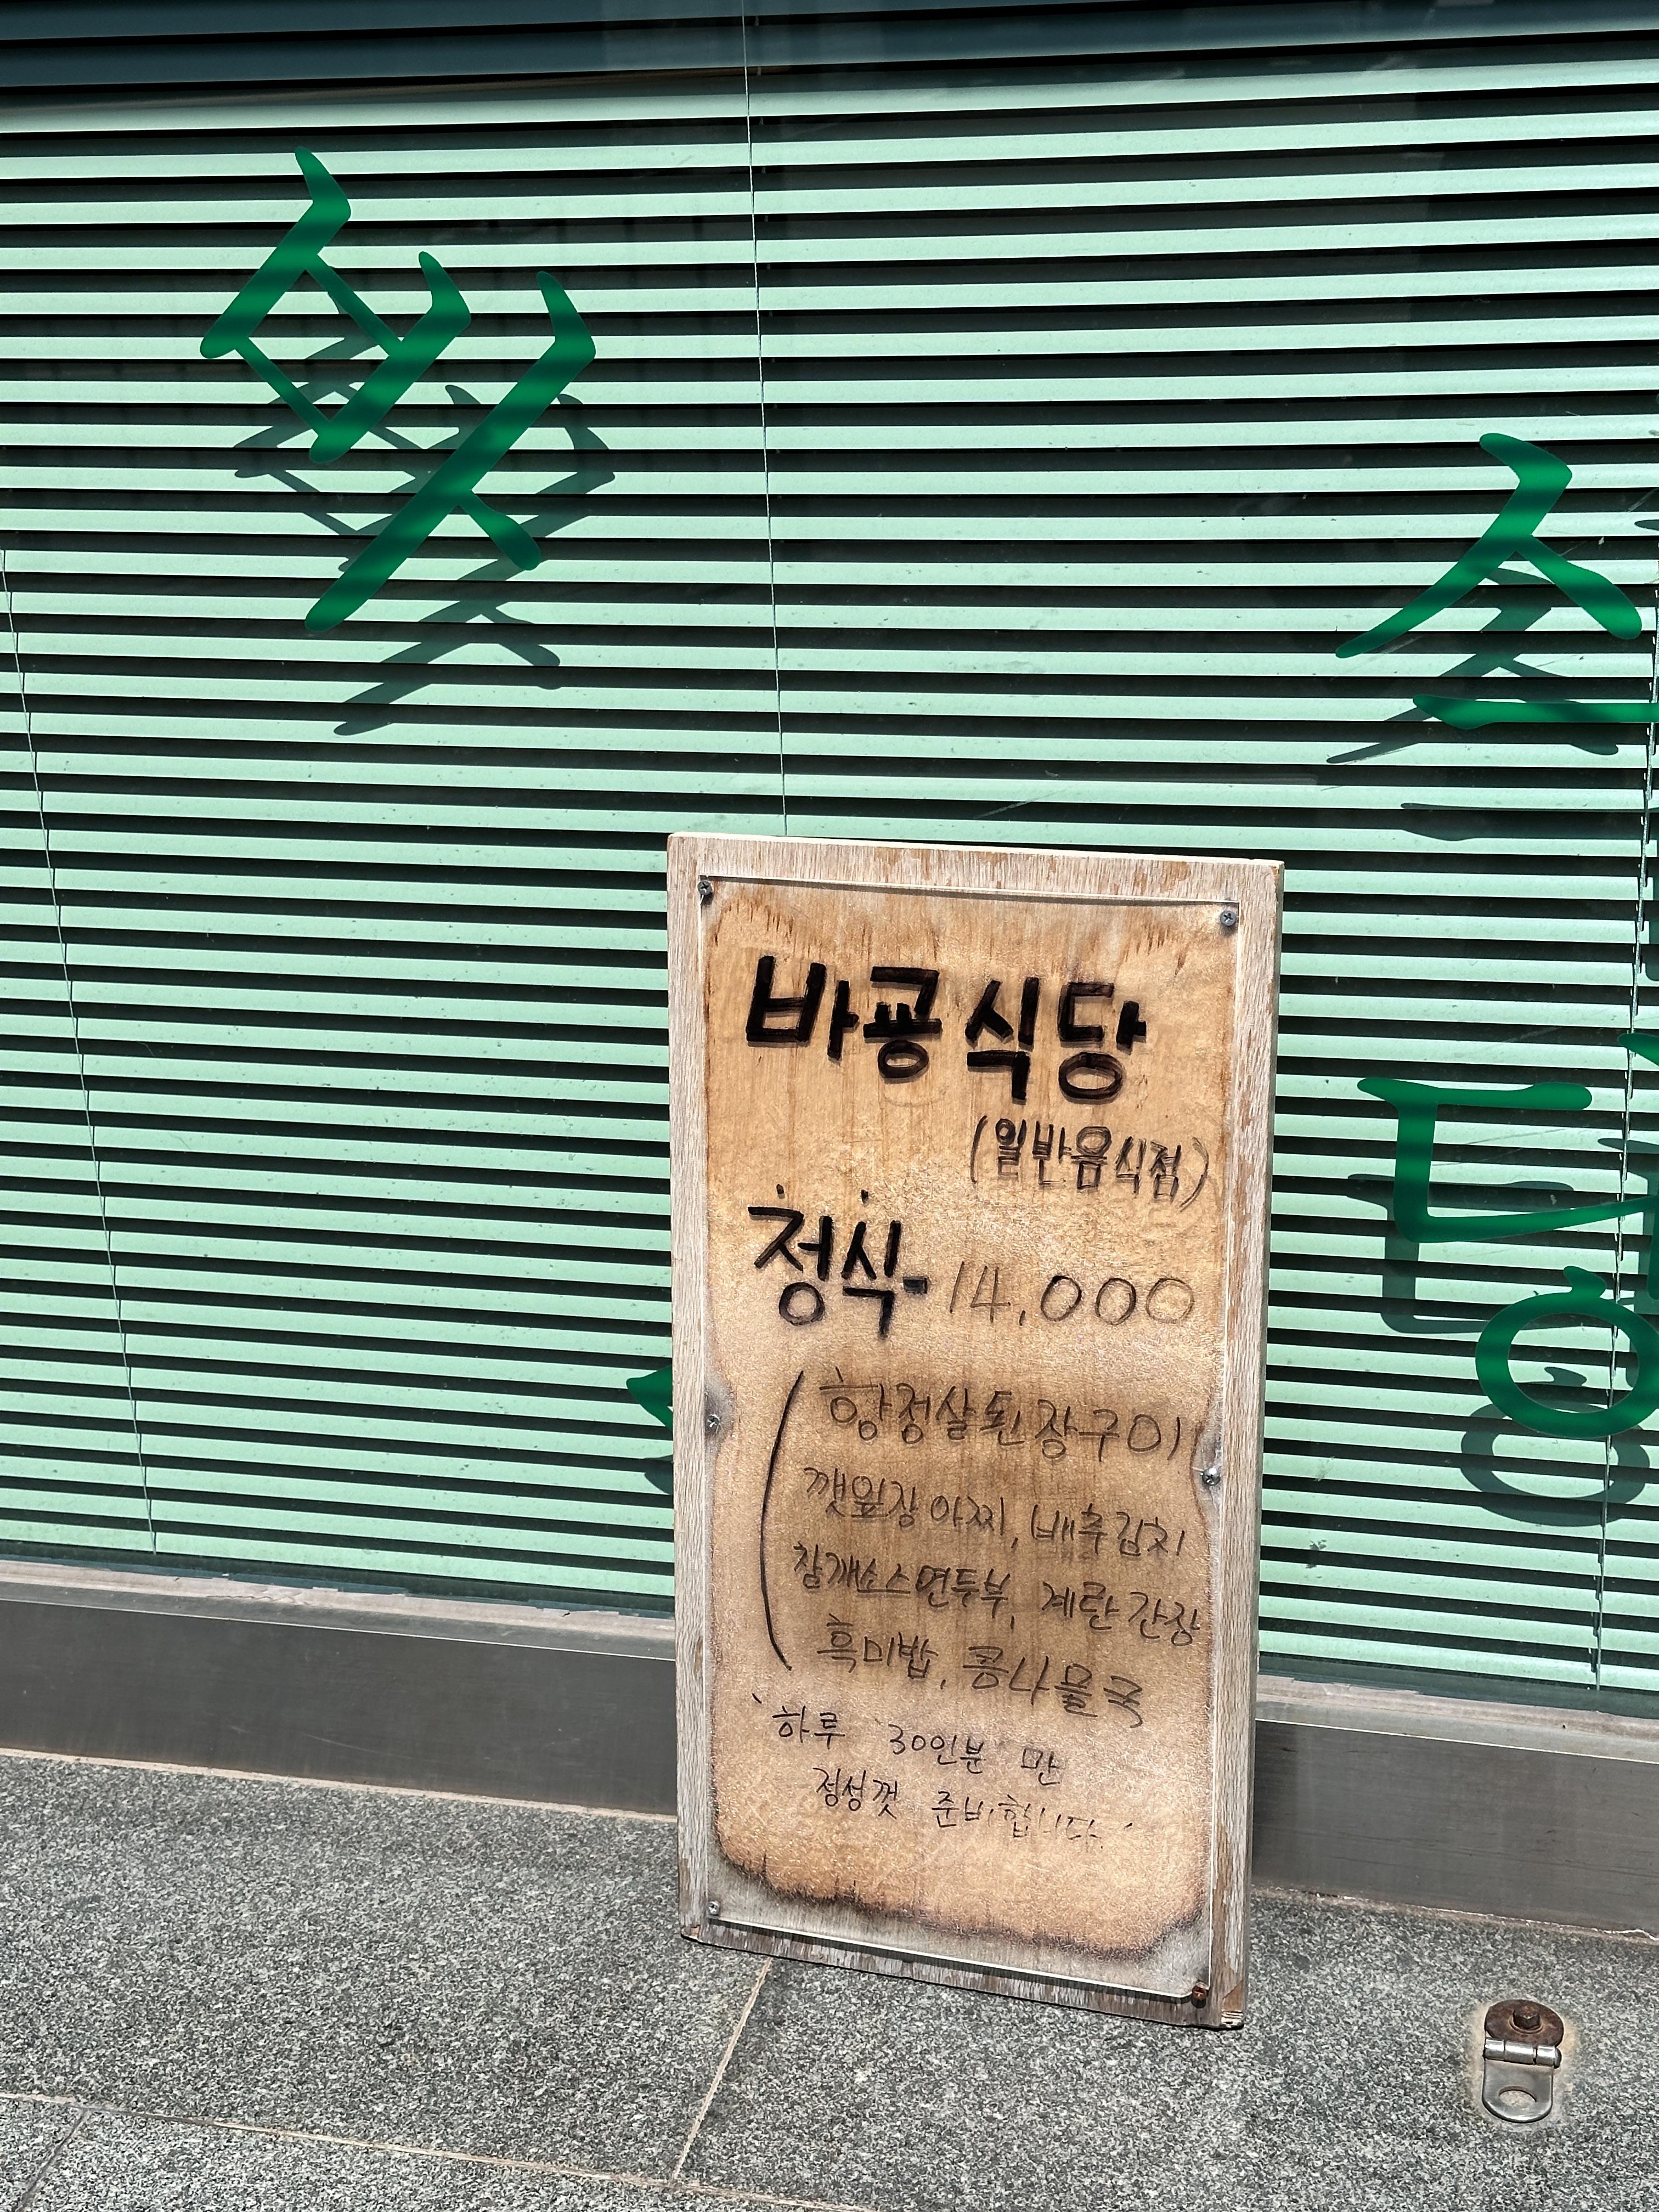 바공식당
(일반음식점)
정식- 14,000
항정살된장구이
깻잎장아찌, 배추김치
참깨소스연두부, 계란간장
흑미밥, 콩나물국
'하루 30인분 만
정성껏 준비합니다.'